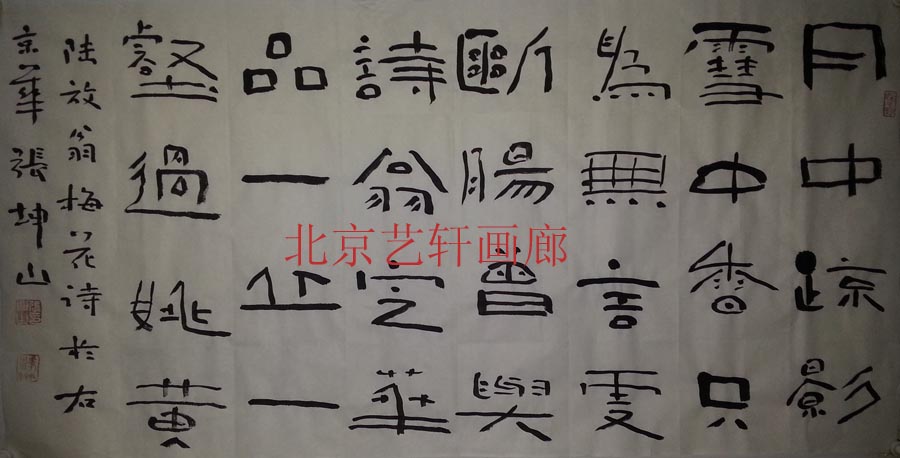 月中疏影
雪中香只
為無言更
斷腸曾與
詩翁定華
品一丘一
壑過姚黃
陸放翁梅花诗於右
京華張坤山
北京艺轩画廊